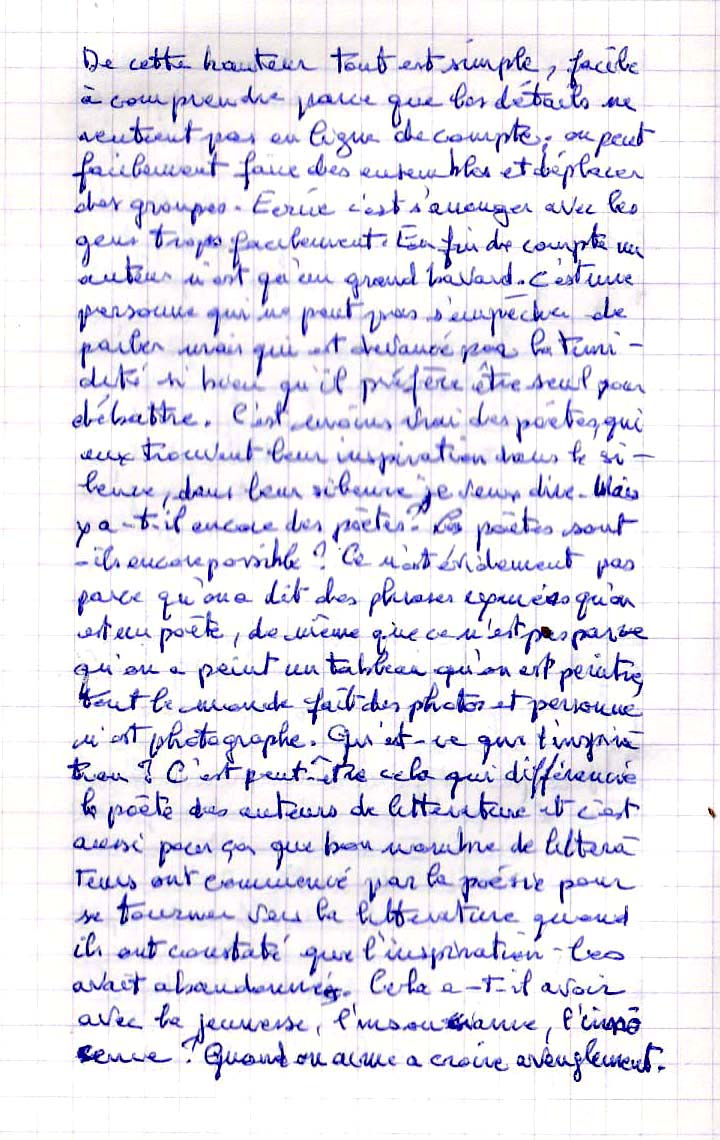 De cette hauteur tout est simple, facile
à comprendre parce que les détails ne
rentrent pas en ligne de compte. on peut
facilement faire des ensembles et déplacer
des groupes. Ecrire c'est s'arranger avec les
gens trop facilement. En fin de compte un
auteur n'est qu'un grand bavard. C'est une
personne qui ne peut pas s'empêcher de
parler mais qui est devancé par la timi-
dité si bien qu'il préfère être seul pour
débattre. C'est moins vrai des poètes, qui
eux trouvent leur inspiration dans le si-
lence, dans leur silence je veux dire. Mais
y a-t-il encore des poètes? Les poètes sont
-ils encore possible? Ce n'est évidement pas
parce qu'on a dit des phrases qu'on
est un poète, de même que ce n'est pas parce
qu'on a peint un tableau qu'on est peintre,
tout le monde fait des photos et personne
n'est photographe. Qu'est-ce que l'inspira
tion? C'est peut-être cela qui différencie
le poète des auteurs de litterature et c'est
aussi pour ça que bon nombre de littera
teurs ont commencé par la poésie pour
se tourner vers la litterature quand
ils ont constaté que l'inspiration les
avait abandonnés. Cela a-t-il avoir
avec la jeunesse, l'insouciance, l'inno
cence? Quand on aime a croire aveuglement.